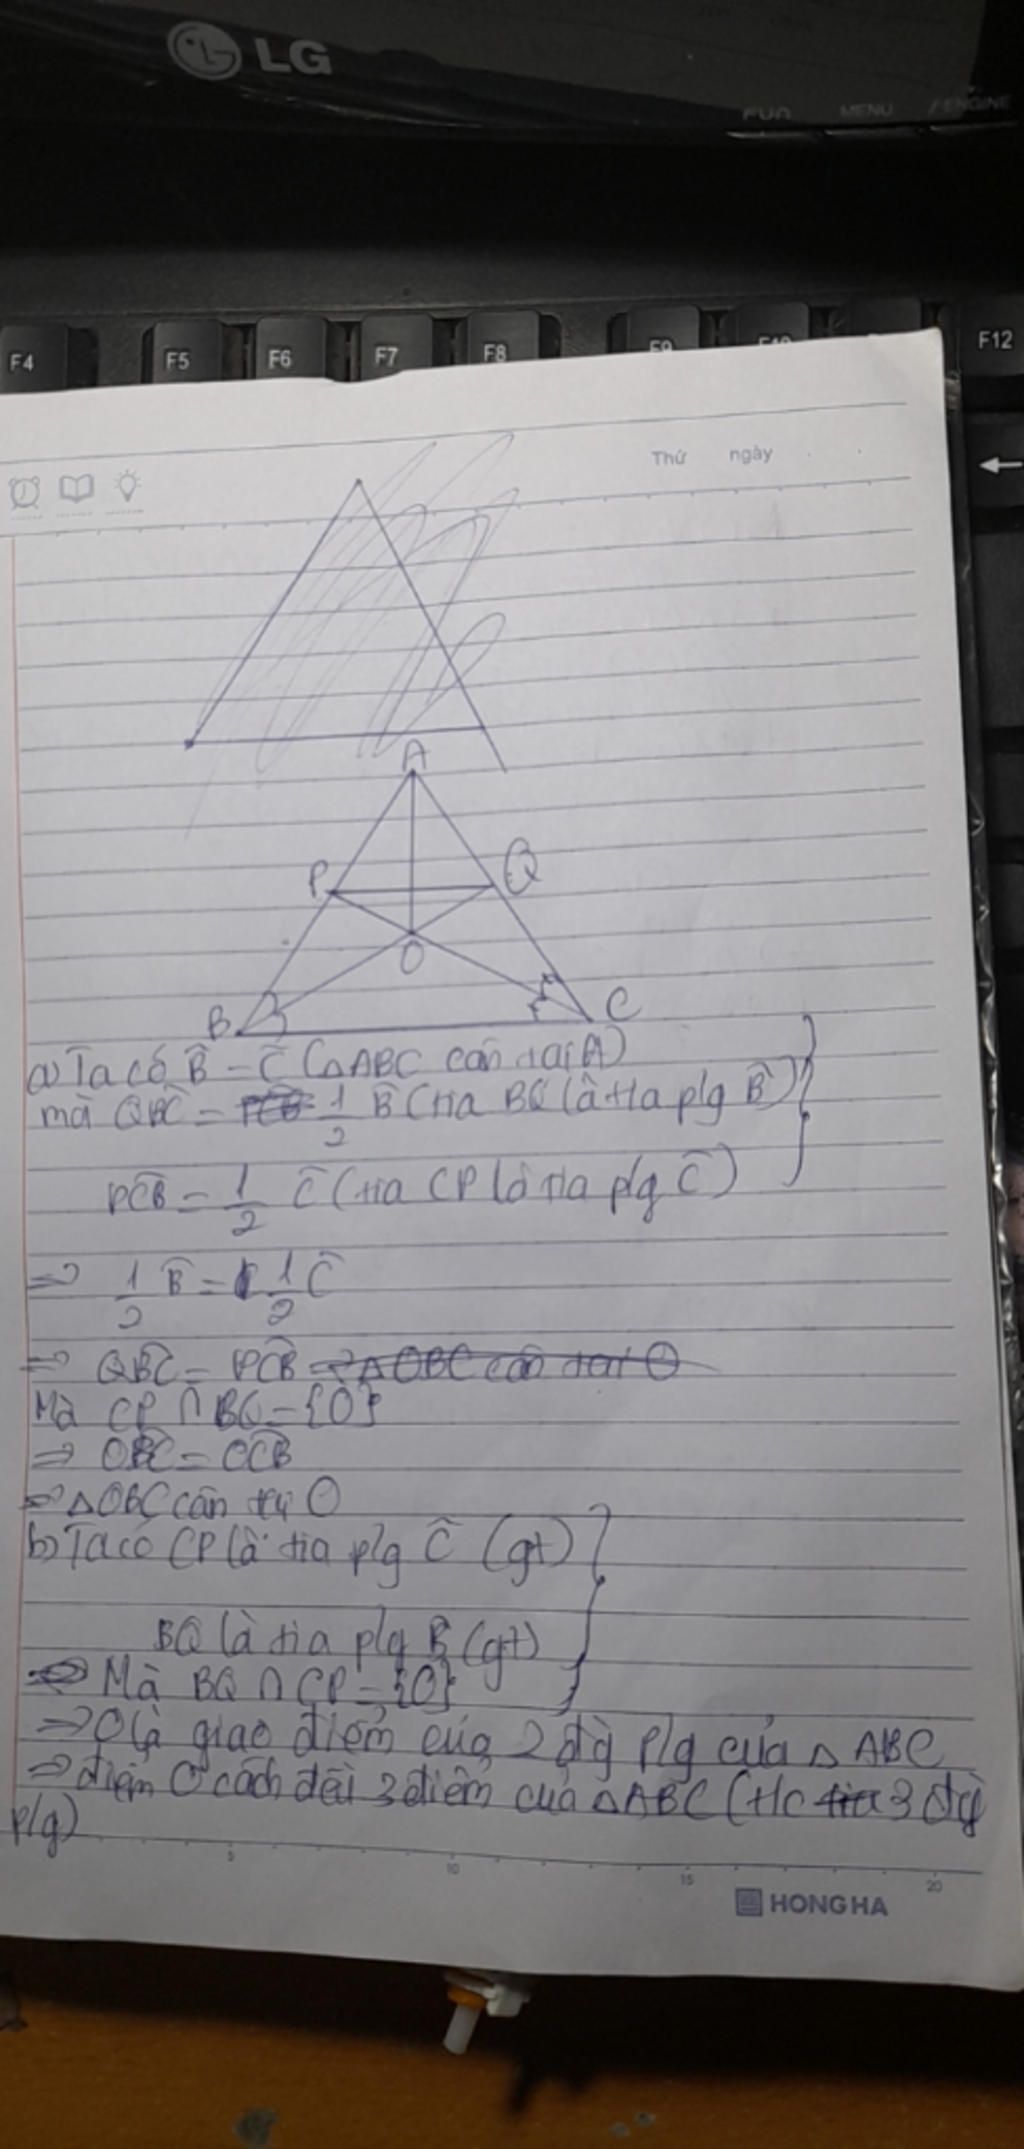 LG
FUN MENU /ENGINE
F4 F5 F6 F7 F8 F9 F10 F12
Thứ ngày
A
P Q
O
B C
a) Ta có B̂ = Ĉ (△ABC cân tại A)
mà QBC = 1/2 B̂ (tia BQ là tia p/g B̂)
PCB = 1/2 Ĉ (tia CP là tia p/g Ĉ)
=> 1/2 B̂ = 1/2 Ĉ
=> QBC = PCB => △OBC cân tại O
Mà CP ∩ BQ = {O}
=> OBC = OCB
=> △OBC cân tại O
b) Ta có CP là tia p/g Ĉ (gt)
BQ là tia p/g B̂ (gt)
Mà BQ ∩ CP = {O}
=> O là giao điểm của 2 đg p/g của △ABC
=> điểm O cách đều 3 điểm của △ABC (t/c tia 3 đg
p/g)
5 10 15 20
HONG HA